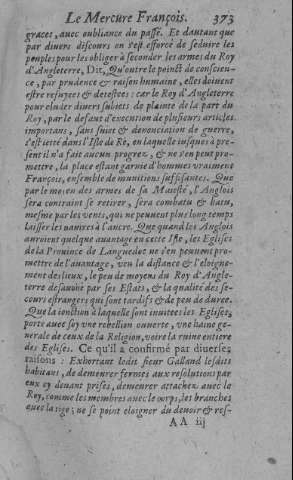 Le Mercure François. 373
graces, auec oubliance du passé. Et dautant que
par diuers discours on s'est efforcé de seduire les
peuples pour les obliger à seconder les armes du Roy
d'Angleterre, Dit, Qu'outre le poinct de conscien-
ce, par prudence & raison humaine, elles doiuent
estre refusees & detestees: car le Roy d'Angleterre
pour eluder diuers subiets de plainte de la part du
Roy, par le defaut d'execution de plusieurs articles
importans, sans suiet & denonciation de guerre,
s'est ietté dans l'Isle de Ré, en laquelle iusques à pre-
sent il n'a fait aucun progrez, & ne s'en peut pro-
mettre, la place estant garnie d'hommes vrayment
François, ensemble de munitions suffisantes. Que
par le moyen des armes de sa Maiesté, l'Anglois
sera contraint se retirer, sera combatu & batu,
mesme par les vents, qui ne peuuent plus long temps
laisser les nauires à l'ancre. Que quand les Anglois
auroient quelque auantage en ceste Isle, les Eglises
de la Prouince de Languedoc ne s'en peuuent pro-
mettre de l'auantage, veu la distance & l'eloigne-
ment des lieux, le peu de moyens du Roy d'Angle-
terre desauoüé par ses Estats, & la qualité des se-
cours estrangers qui sont tardifs & de peu de duree.
Que la ionction à laquelle sont inuitees les Eglises,
porte auec soy vne rebellion ouuerte, vne haine ge-
nerale de ceux de la Religion, voire la ruine entiere
des Eglises. Ce qu'il a confirmé par diuerses
raisons: Exhortant ledit sieur Galland lesdits
habitans, de demeurer fermes aux resolutions par
eux cy deuant prises, demeurer attachez auec le
Roy, comme les membres auec le corps, les branches
auec la tige; ne se point eloigner du deuoir & res-
A A iij